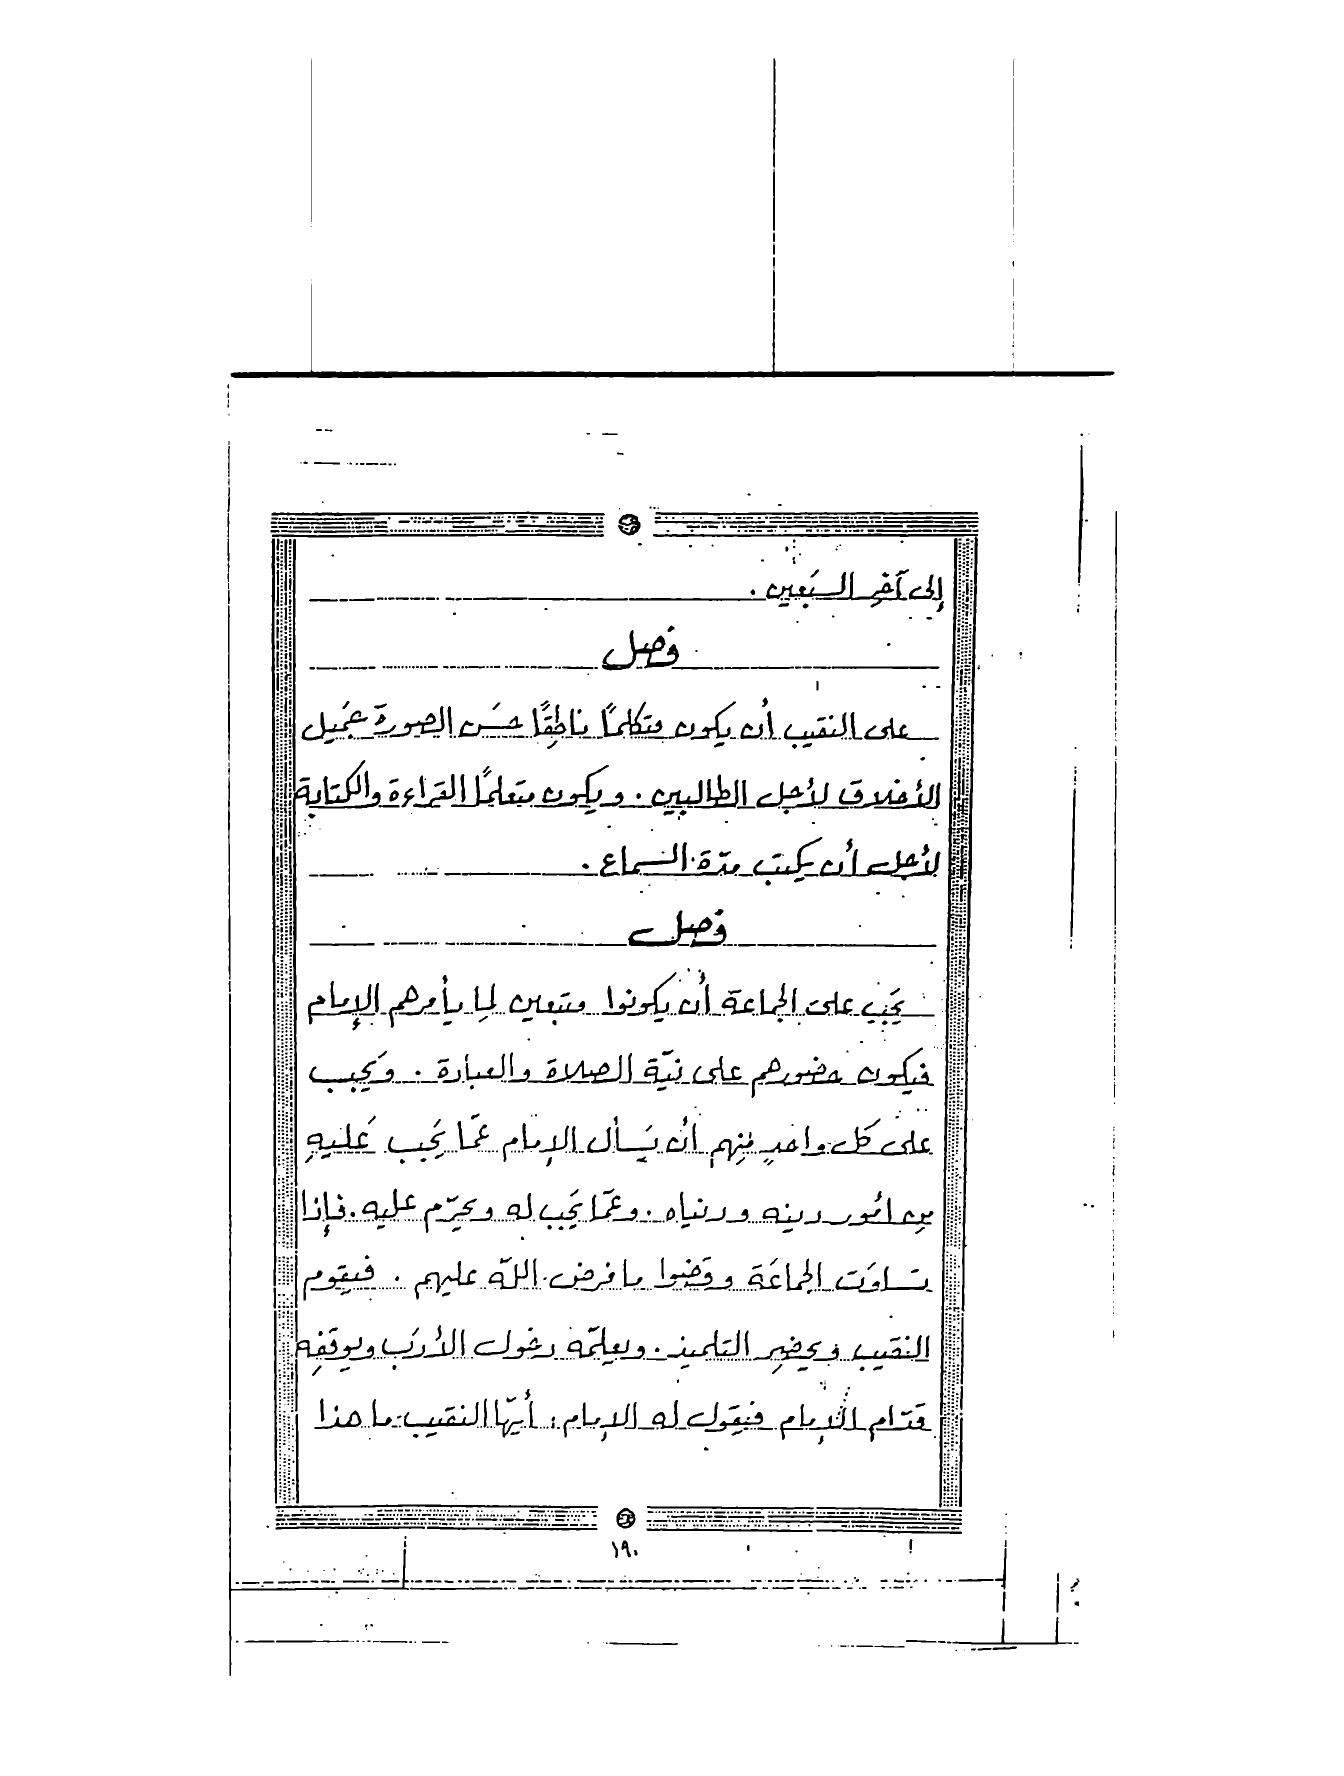 إلى آخر السَبعين .
فصل
على النقيب أن يكون متكلمًا ناطِقًا حسَن الصورة جَميل
الأخلاق لأجل الطالبين . ويكون متعلمًا القراءة والكتابة
لأجل أن يكتب مدّة السماع .
فصل
يَجب على الجماعة أن يكونوا متبعين لِما يأمرهم الإمام
فيكون حضورهم على نيّة الصلاة والعبادة . ويَجب
على كل واحدٍ مِنهم أن يَسأل الإمام عمّا يَجب عَليهِ
مِن أُمور دينه ودنياه . وعمّا يَجب له ويحرّم عليه . فإذا
تساوَت الجماعَة وقَضوا ما فرض اللّه عليهم . فيقوم
النقيب ويحضِر التلميذ . ويعلّمه دخول الأدَب ويوقفِه
قدّام الإمام فيَقول له الإمام : أيّها النقيب ما هذا
١٩٠